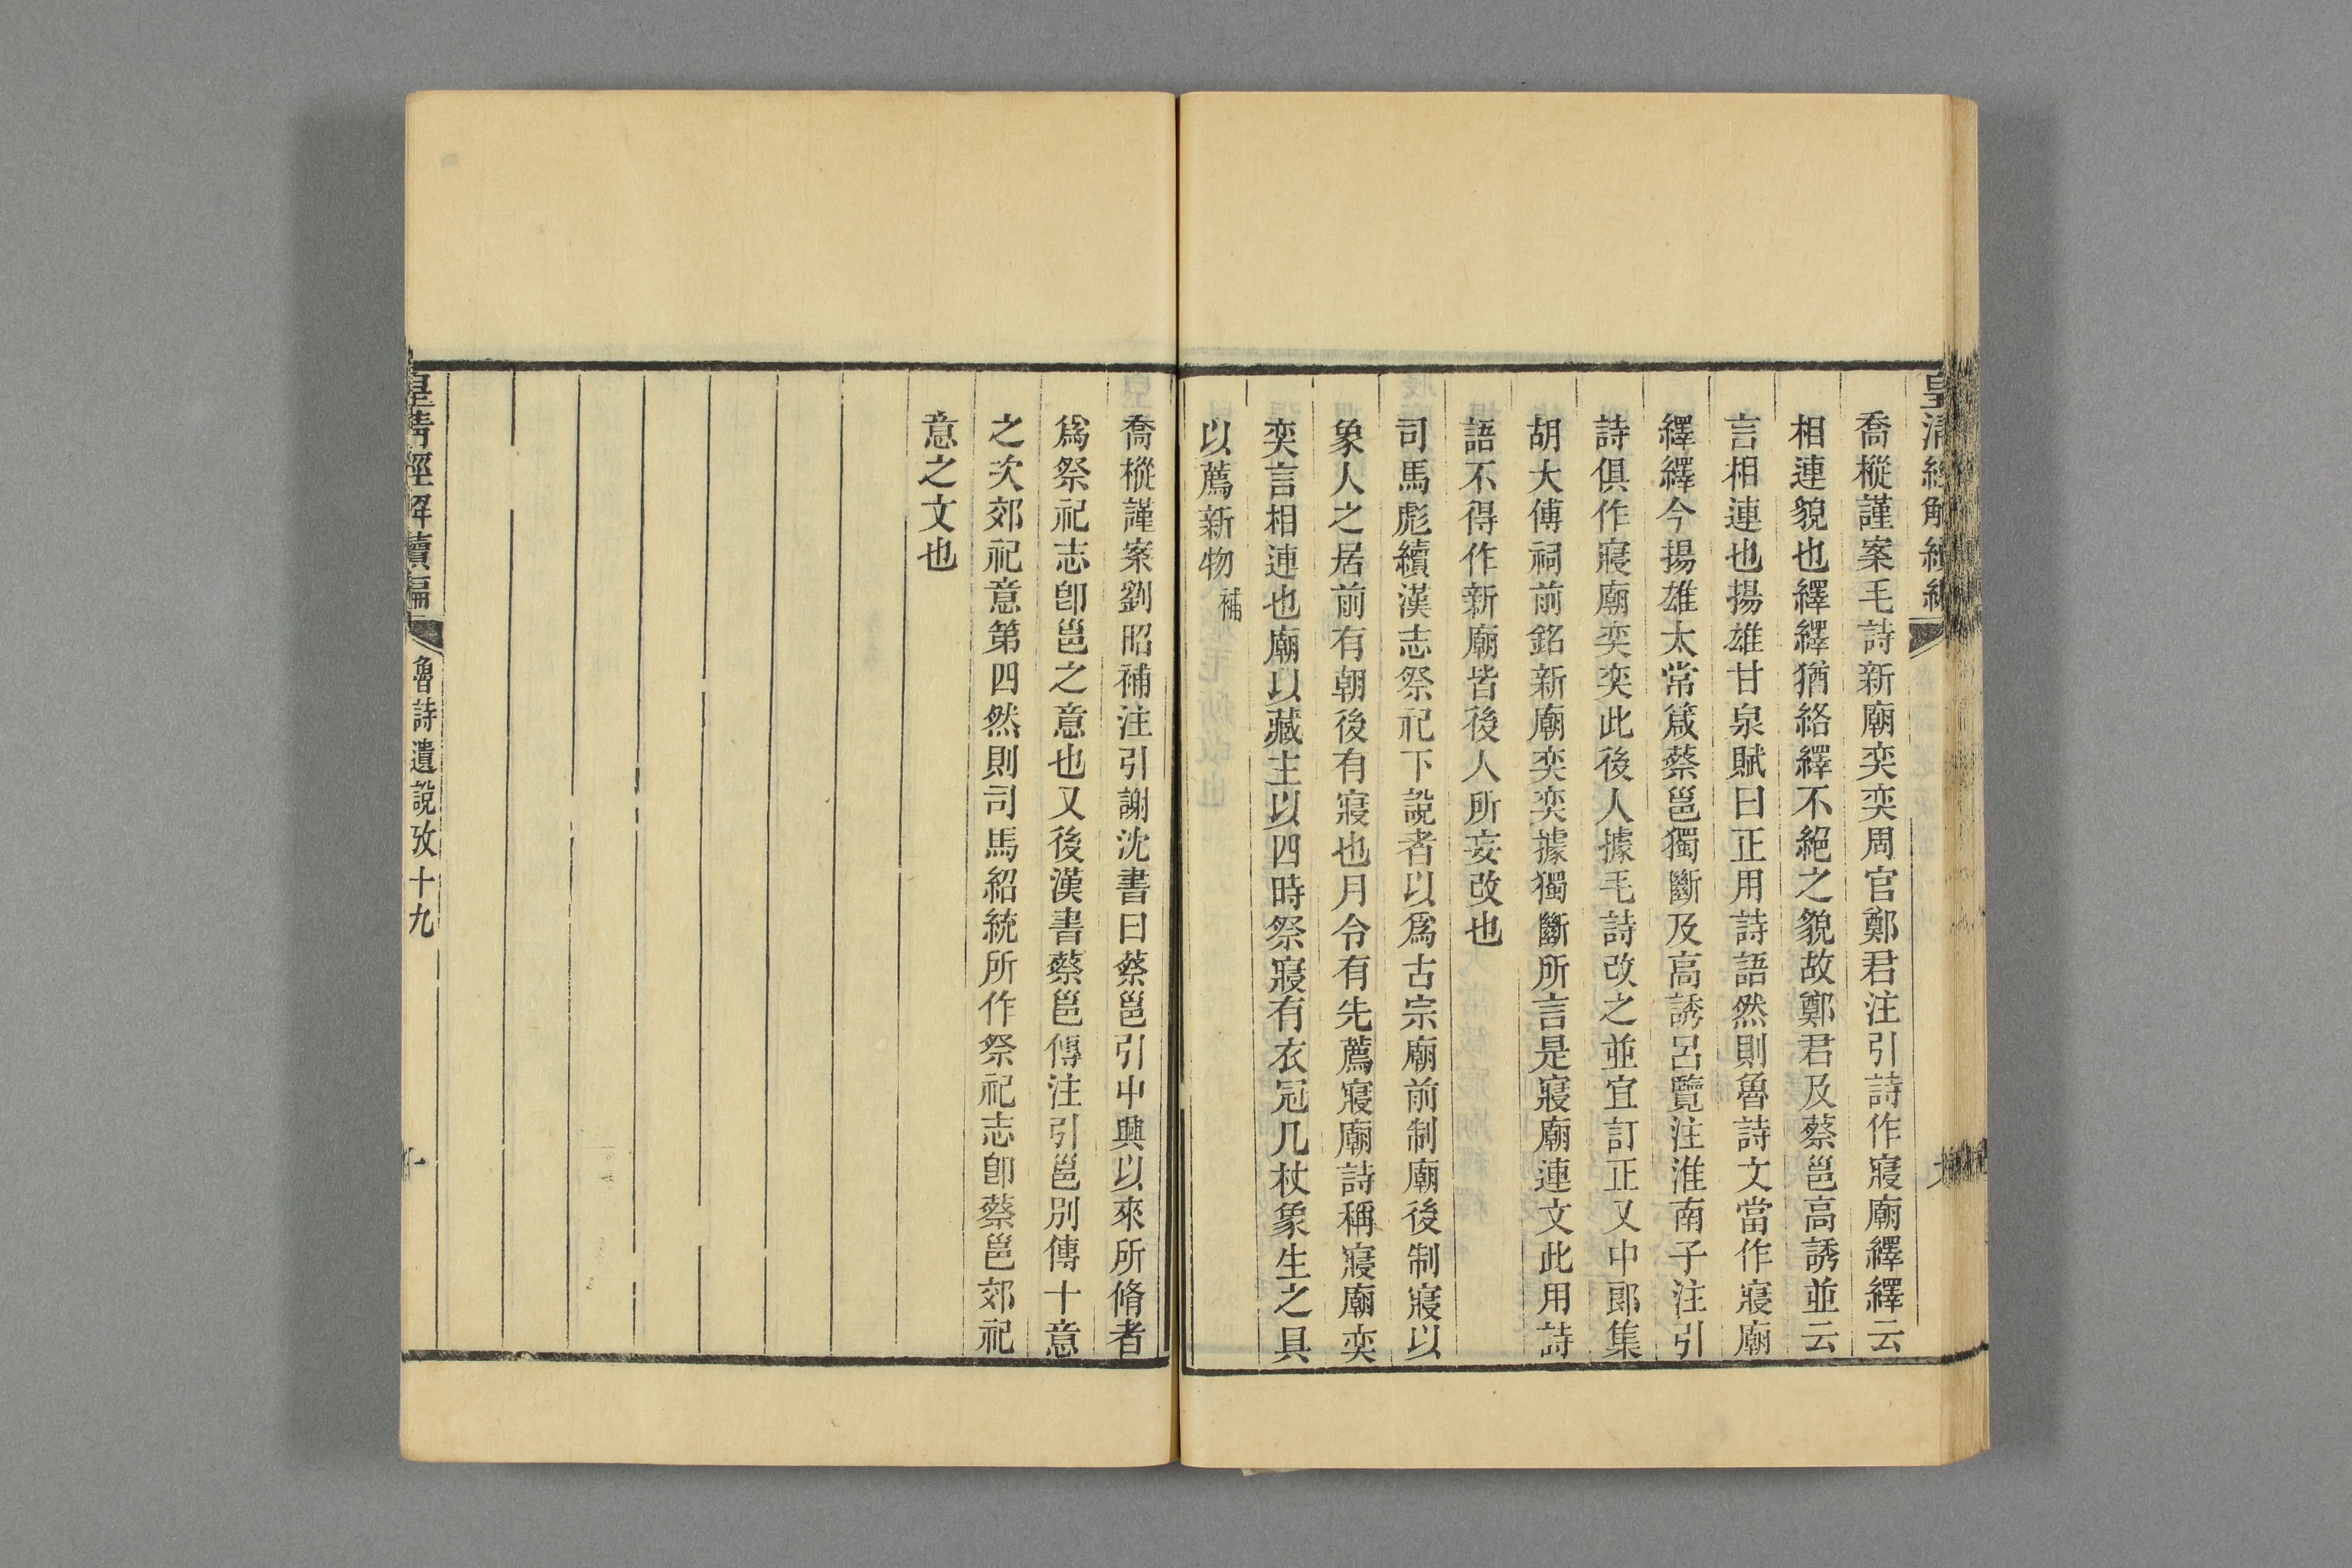 皇清經解續編
喬樅謹案毛詩新廟奕奕周官鄭君注引詩作寢廟繹繹云
相連貌也繹繹猶絡繹不絕之貌故鄭君及蔡邕高誘並云
言相連也揚雄甘泉賦曰正用詩語然則魯詩文當作寢廟
繹繹今揚雄太常箴蔡邕獨斷及高誘呂覽注淮南子注引
詩俱作寢廟奕奕此後人據毛詩改之並宜訂正又中郎集
胡大傅祠前銘新廟奕奕據獨斷所言是寢廟連文此用詩
語不得作新廟皆後人所妄改也
司馬彪續漢志祭祀下說者以爲古宗廟前制廟後制寢以
象人之居前有朝後有寢也月令有先薦寢廟詩稱寢廟奕
奕言相連也廟以藏主以四時祭寢有衣冠几杖象生之具
以薦新物補
喬樅謹案劉昭補注引謝沈書曰蔡邕引中興以來所脩者
爲祭祀志卽邕之意也又後漢書蔡邕傳注引邕別傳十意
之次郊祀意第四然則司馬紹統所作祭祀志卽蔡邕郊祀
意之文也
皇清經解續編
魯詩遺說攷十九